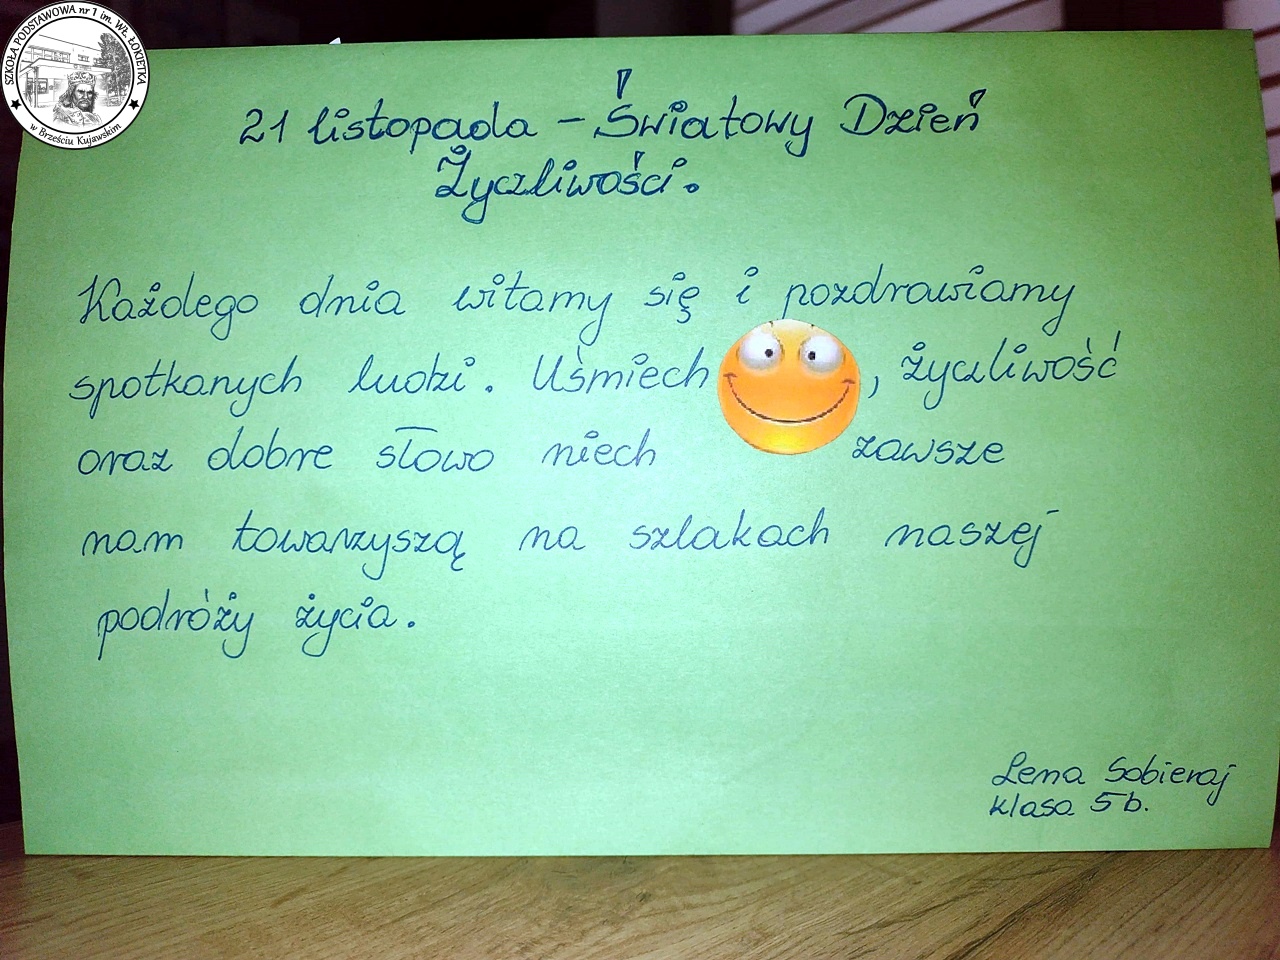 SZKOŁA PODSTAWOWA nr 1 im. WŁ. ŁOKIETKA
w Brześciu Kujawskim
21 listopada - Światowy Dzień
Życzliwości.
Każdego dnia witamy się i pozdrawiamy
spotkanych ludzi. Uśmiech , życzliwość
oraz dobre słowo niech zawsze
nam towarzyszą na szlakach naszej
podróży życia.
Lena Sobieraj
klasa 5b.